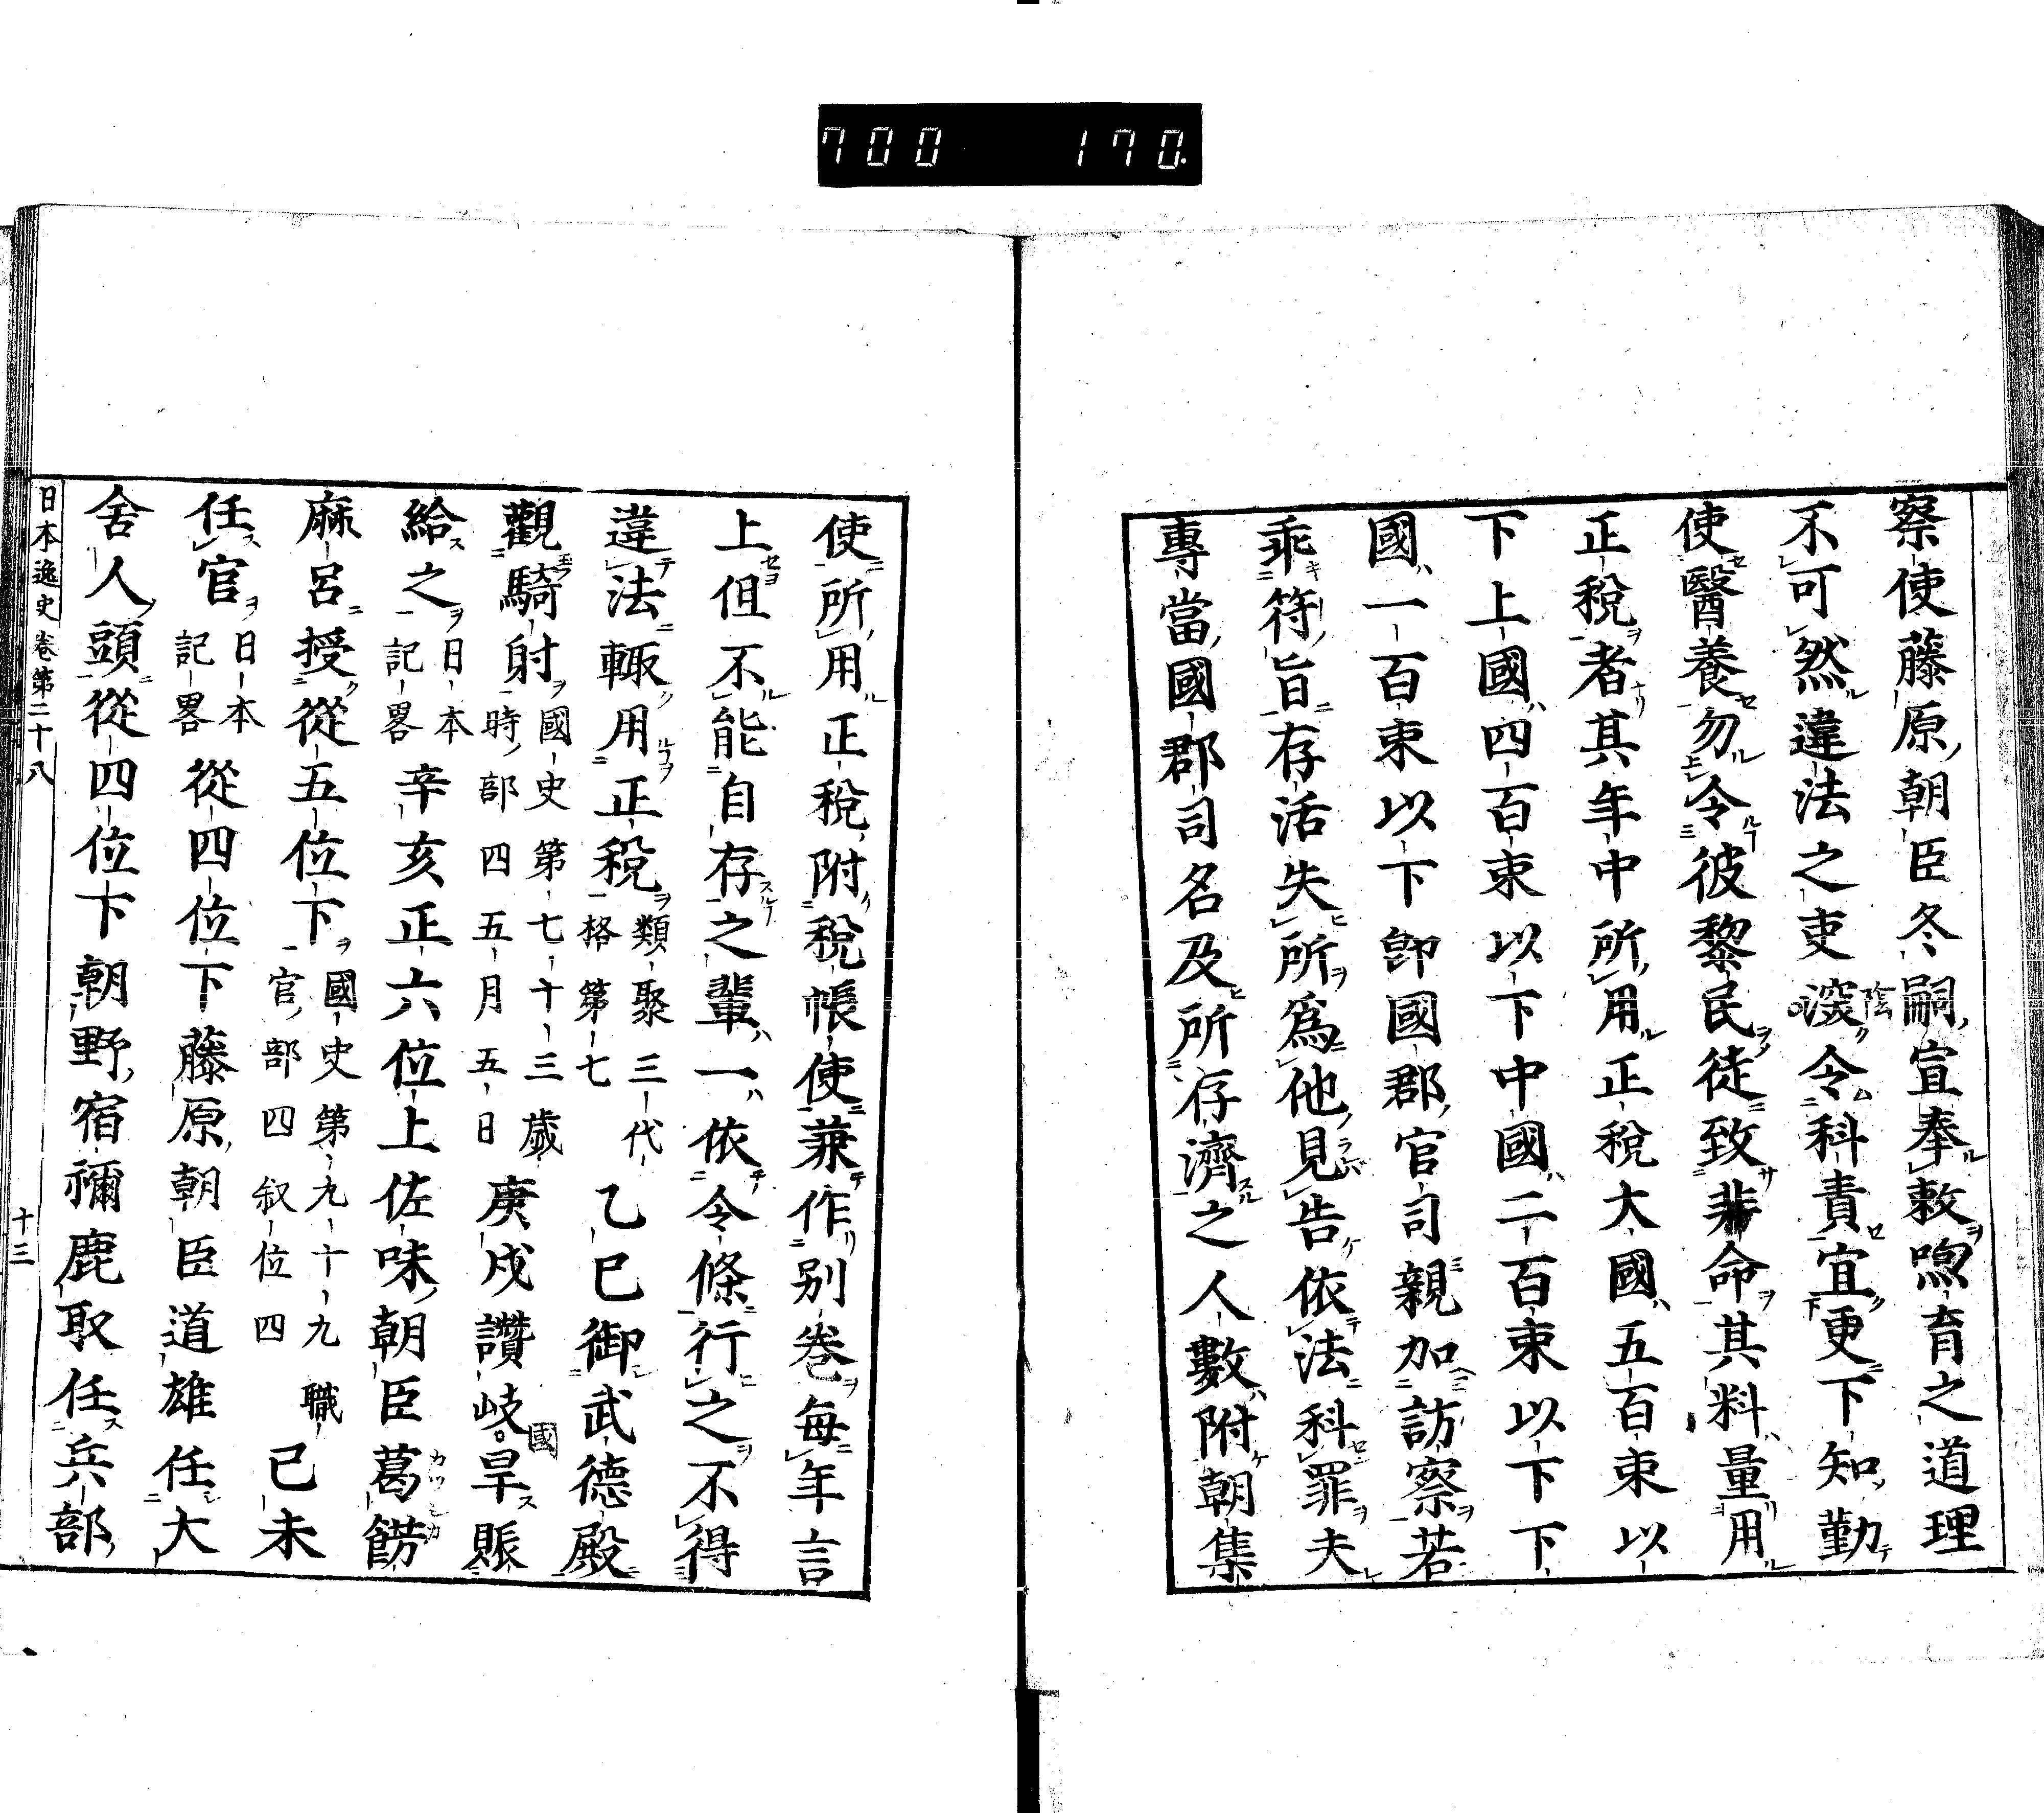 700 170.
察使藤原朝臣冬嗣宣奉敕喣育之道理
不可然違法之吏深令科責宜更下知勤
使醫養勿令彼黎民徒致非命其料量用
正稅者其年中所用正稅大國五百束以
下上國四百束以下中國二百束以下下
國一百束以下卽國郡官司親加訪察若
乖符旨存活失所爲他見告依法科罪夫
專當國郡司名及所存濟之人數附朝集
使所用正稅附稅帳使兼作別卷每年言
上但不能自存之輩一依令條行之不得
違法輙用正稅類聚三代格第七乙巳御武德殿
觀騎射國史第七十三歲時部四五月五日庚戌讚岐國旱賑
給之日本記畧辛亥正六位上佐味朝臣葛餝
麻呂授從五位下國史第九十九職官部四叙位四己未
任官日本記畧從四位下藤原朝臣道雄任大
舍人頭從四位下朝野宿禰鹿取任兵部
日本逸史卷第二十八 十三